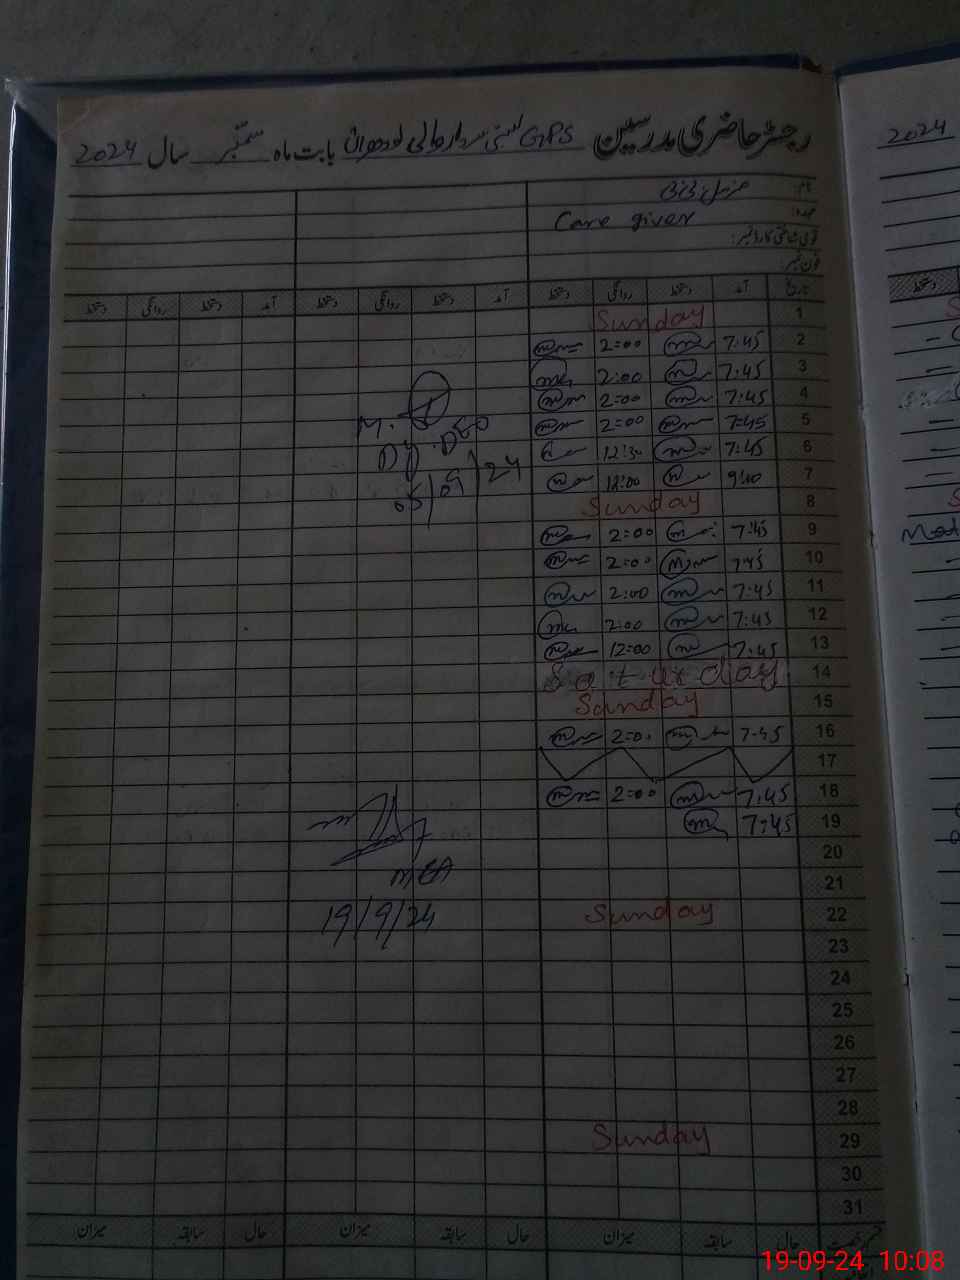 رجسٹر حاضری مدرسین GPS بستی سردار والی لودھراں بابت ماہ ستمبر سال 2024
2024
نام:
عہدہ: Care giver
قومی شناختی کارڈ نمبر:
فون نمبر
تاریخ آمد دستخط روانگی دستخط آمد دستخط روانگی دستخط
دستخط
1 Sunday
2 7:45 2:00
3 7:45 2:00
4 7:45 2:00
5 7:45 2:00
6 7:45 12:30
7 9:00
8 Sunday
9 7:45 2:00
10 7:45 2:00
11 7:45 2:00
12 7:45 2:00
13 7:45 12:00
14 Saturday
15 Sunday
16 7:45 2:00
17
18 7:45 2:00
19 7:45
20
21
22 Sunday
23
24
25
26
27
28
29 Sunday
30
31
M.
Dy. DEO
05/09/24
MEA
19/9/24
حال سابقہ میزان حال سابقہ میزان حال سابقہ میزان
19-09-24 10:08